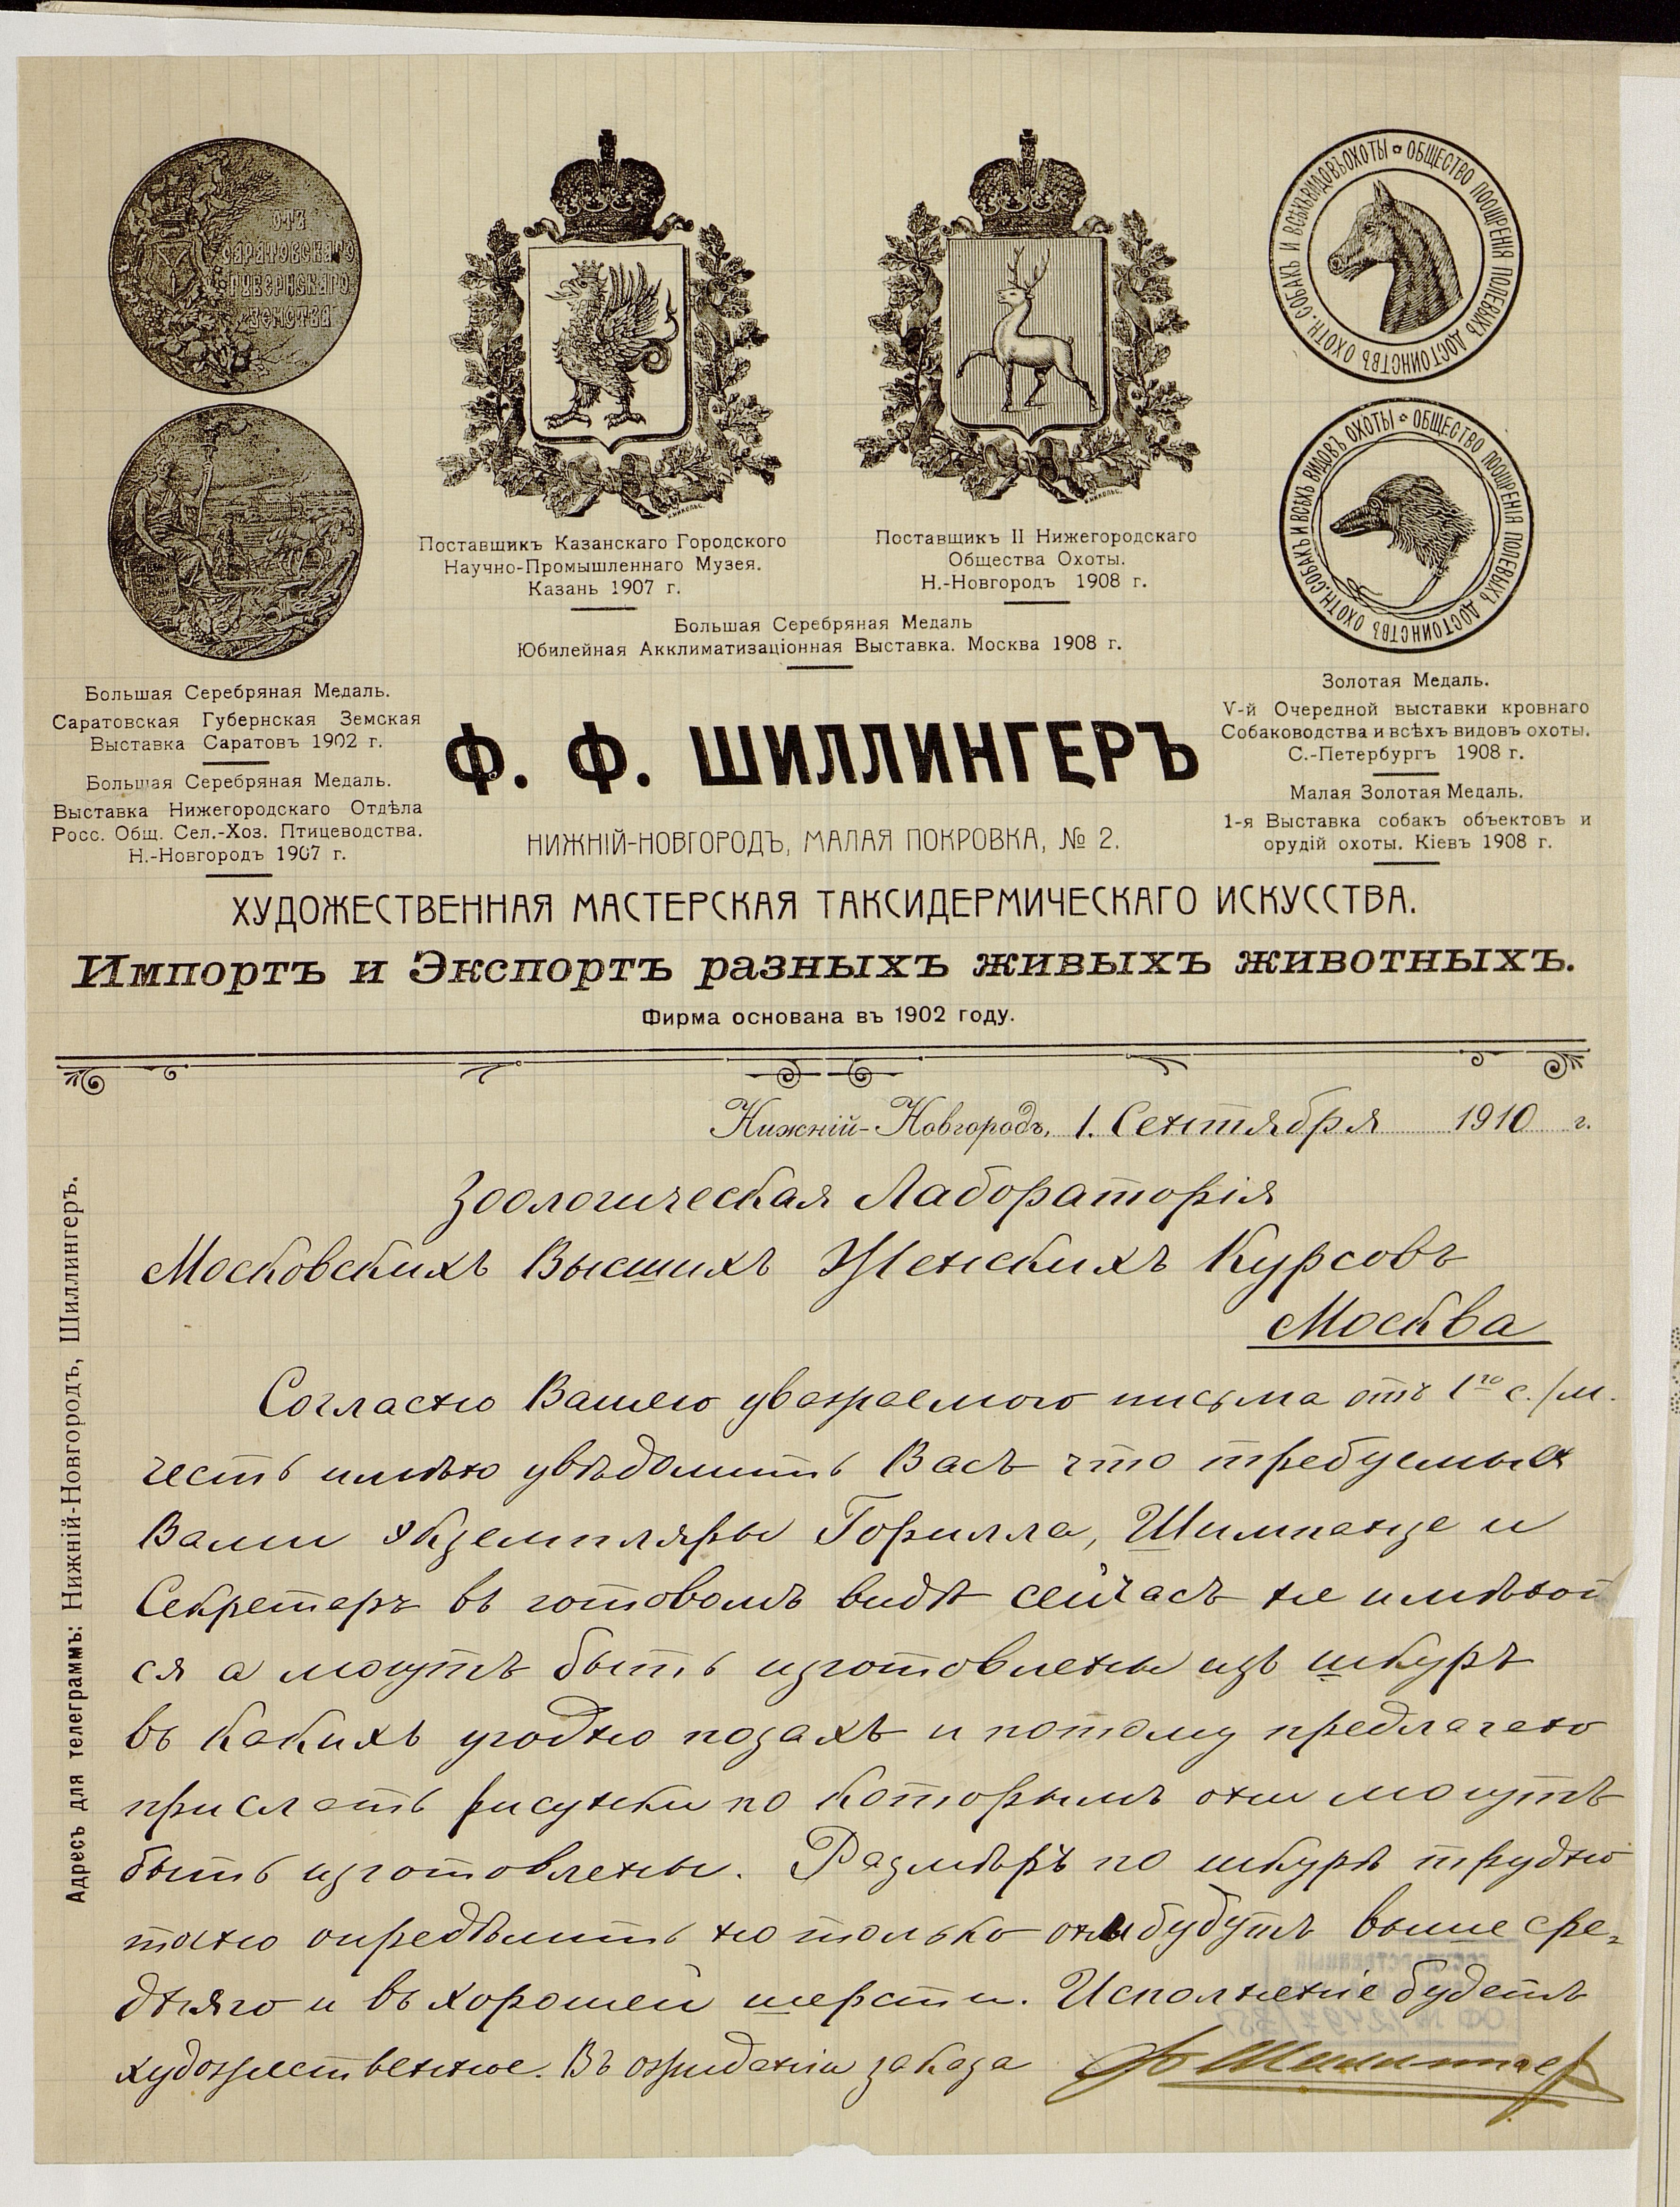 ОТЪ
САРАТОВСКАГО
ГУБЕРНСКАГО
ЗЕМСТВА
ОБЩЕСТВО ПООЩРЕНІЯ ПОЛЕВЫХЪ ДОСТОИНСТВЪ ОХОТН. СОБАКЪ И ВСѢХЪ ВИДОВЪ ОХОТЫ
ОБЩЕСТВО ПООЩРЕНІЯ ПОЛЕВЫХЪ ДОСТОИНСТВЪ ОХОТН. СОБАКЪ И ВСѢХЪ ВИДОВЪ ОХОТЫ
Поставщикъ Казанскаго Городского
Научно-Промышленнаго Музея.
Казань 1907 г.
Поставщикъ II Нижегородскаго
Общества Охоты.
Н.-Новгородъ 1908 г.
Большая Серебряная Медаль
Юбилейная Акклиматизаціонная Выставка. Москва 1908 г.
Большая Серебряная Медаль.
Саратовская Губернская Земская
Выставка Саратовъ 1902 г.
Большая Серебряная Медаль.
Выставка Нижегородскаго Отдѣла
Росс. Общ. Сел.-Хоз. Птицеводства.
Н.-Новгородъ 1907 г.
Золотая Медаль.
V-й Очередной выставки кровнаго
Собаководства и всѣхъ видовъ охоты.
С.-Петербургъ 1908 г.
Малая Золотая Медаль.
1-я Выставка собакъ объектовъ и
орудій охоты. Кіевъ 1908 г.
Ф. Ф. ШИЛЛИНГЕРЪ
НИЖНІЙ-НОВГОРОДЪ, МАЛАЯ ПОКРОВКА, № 2.
ХУДОЖЕСТВЕННАЯ МАСТЕРСКАЯ ТАКСИДЕРМИЧЕСКАГО ИСКУССТВА.
Импортъ и Экспортъ разныхъ живыхъ животныхъ.
Фирма основана въ 1902 году.
Нижній-Новгородъ, 1. Сентября 1910 г.
Зоологическая Лабораторія
Московскихъ Высшихъ Женскихъ Курсовъ
Москва
Согласно Вашего уважаемого письма отъ 1го с./м.
честь имѣю увѣдомить Васъ что требуемыя
Вами экземпляры Горилла, Шимпанзе и
Секретарь въ готовомъ видѣ сейчасъ не имѣют
ся а могутъ быть изготовлены изъ шкуръ
въ какихъ угодно позахъ и потому предлагаю
прислать рисунки по которымъ они могутъ
быть изготовлены. Размѣръ по шкурѣ трудно
точно опредѣлить но только они будутъ выше сре-
дняго и въ хорошей шерсти. Исполненіе будетъ
художественное. Въ ожиданіи заказа Ф Шиллингер
Адресъ для телеграммъ: Нижній-Новгородъ, Шиллингеръ.